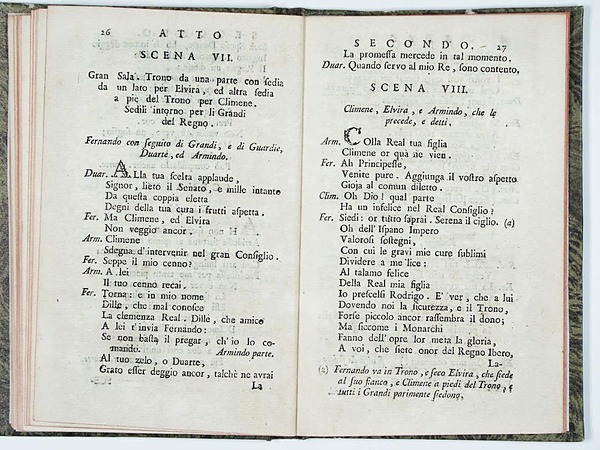 26 ATTO
SCENA VII.
Gran Sala. Trono da una parte con sedia
da un lato per Elvira, ed altra sedia
a piè del Trono per Climene.
Sedili intorno per li Grandi
del Regno.
Fernando con seguito di Grandi, e di Guardie,
Duarte, ed Armindo.
Duar. ALla tua scelta applaude,
Signor, lieto il Senato, e mille intanto
Da questa coppia eletta
Degni della tua cura i frutti aspetta.
Fer. Ma Climene, ed Elvira
Non veggio ancor.
Arm. Climene
Sdegna d'intervenir nel gran Consiglio.
Fer. Seppe il mio cenno?
Arm. A lei
Il tuo cenno recai.
Fer. Torna: e in mio nome
Dille, che mal conosce
La clemenza Real. Dille, che amico
A lei t'invia Fernando:
Se non basta il pregar, ch'io lo co-
mando. Armindo parte.
Al tuo zelo, o Duarte,
Grato esser deggio ancor, talchè ne avrai
La
SECONDO. 27
La promessa mercede in tal momento.
Duar. Quando servo al mio Re, sono contento.
SCENA VIII.
Climene, Elvira, e Armindo, che le
precede, e detti.
Arm. COlla Real tua figlia
Climene or quà ne vien.
Fer. Ah Principesse,
Venite pure. Aggiunga il vostro aspetto
Gioja al comun diletto.
Clim. Oh Dio! qual parte
Ha un infelice nel Real Consiglio?
Fer. Siedi: or tutto saprai. Serena il ciglio. (a)
Oh dell'Ispano Impero
Valorosi sostegni,
Con cui le gravi mie cure sublimi
Dividere a me lice:
Al talamo felice
Della Real mia figlia
Io prescelsi Rodrigo. E' ver, che a lui
Dovendo noi la sicurezza, e il Trono,
Forse piccolo ancor rassembra il dono;
Ma siccome i Monarchi
Fanno dell'opre lor meta la gloria,
A voi, che siete onor del Regno Ibero,
La-
(a) Fernando va in Trono, e seco Elvira, che siede
al suo fianco, e Climene a piedi del Trono, e
tutti i Grandi parimente siedono.